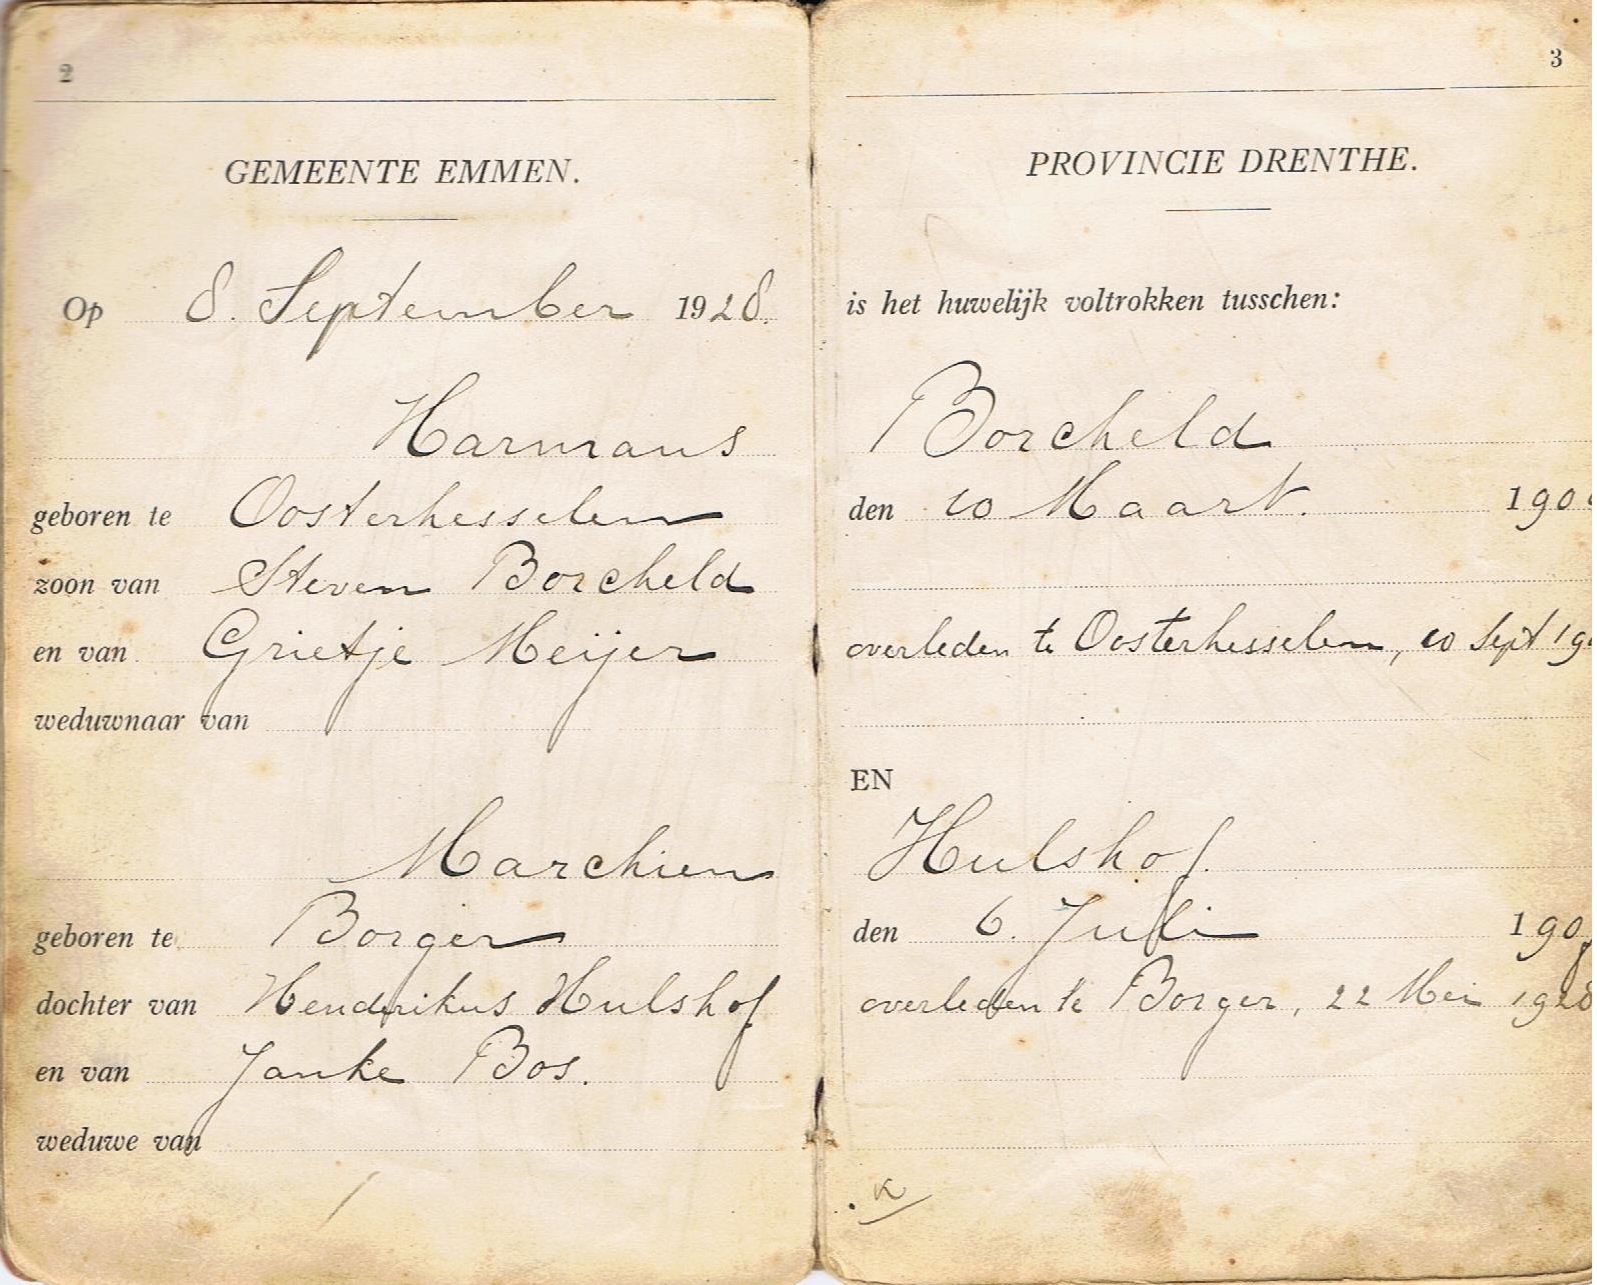 2
GEMEENTE EMMEN.
Op 8. September 1928.
Harmans
geboren te Oosterhesselen
zoon van Steven Borcheld
en van Grietje Meijer
weduwnaar van
Marchien
geboren te Borger
dochter van Hendrikus Hulshof
en van Janke Bos.
weduwe van
3
PROVINCIE DRENTHE.
is het huwelijk voltrokken tusschen:
Borcheld
den 10 Maart. 190
overleden te Oosterhesselen, 10 Sept 19
EN
Hulshof.
den 6. Juli 190
overleden te Borger, 22 Mei 1928
K